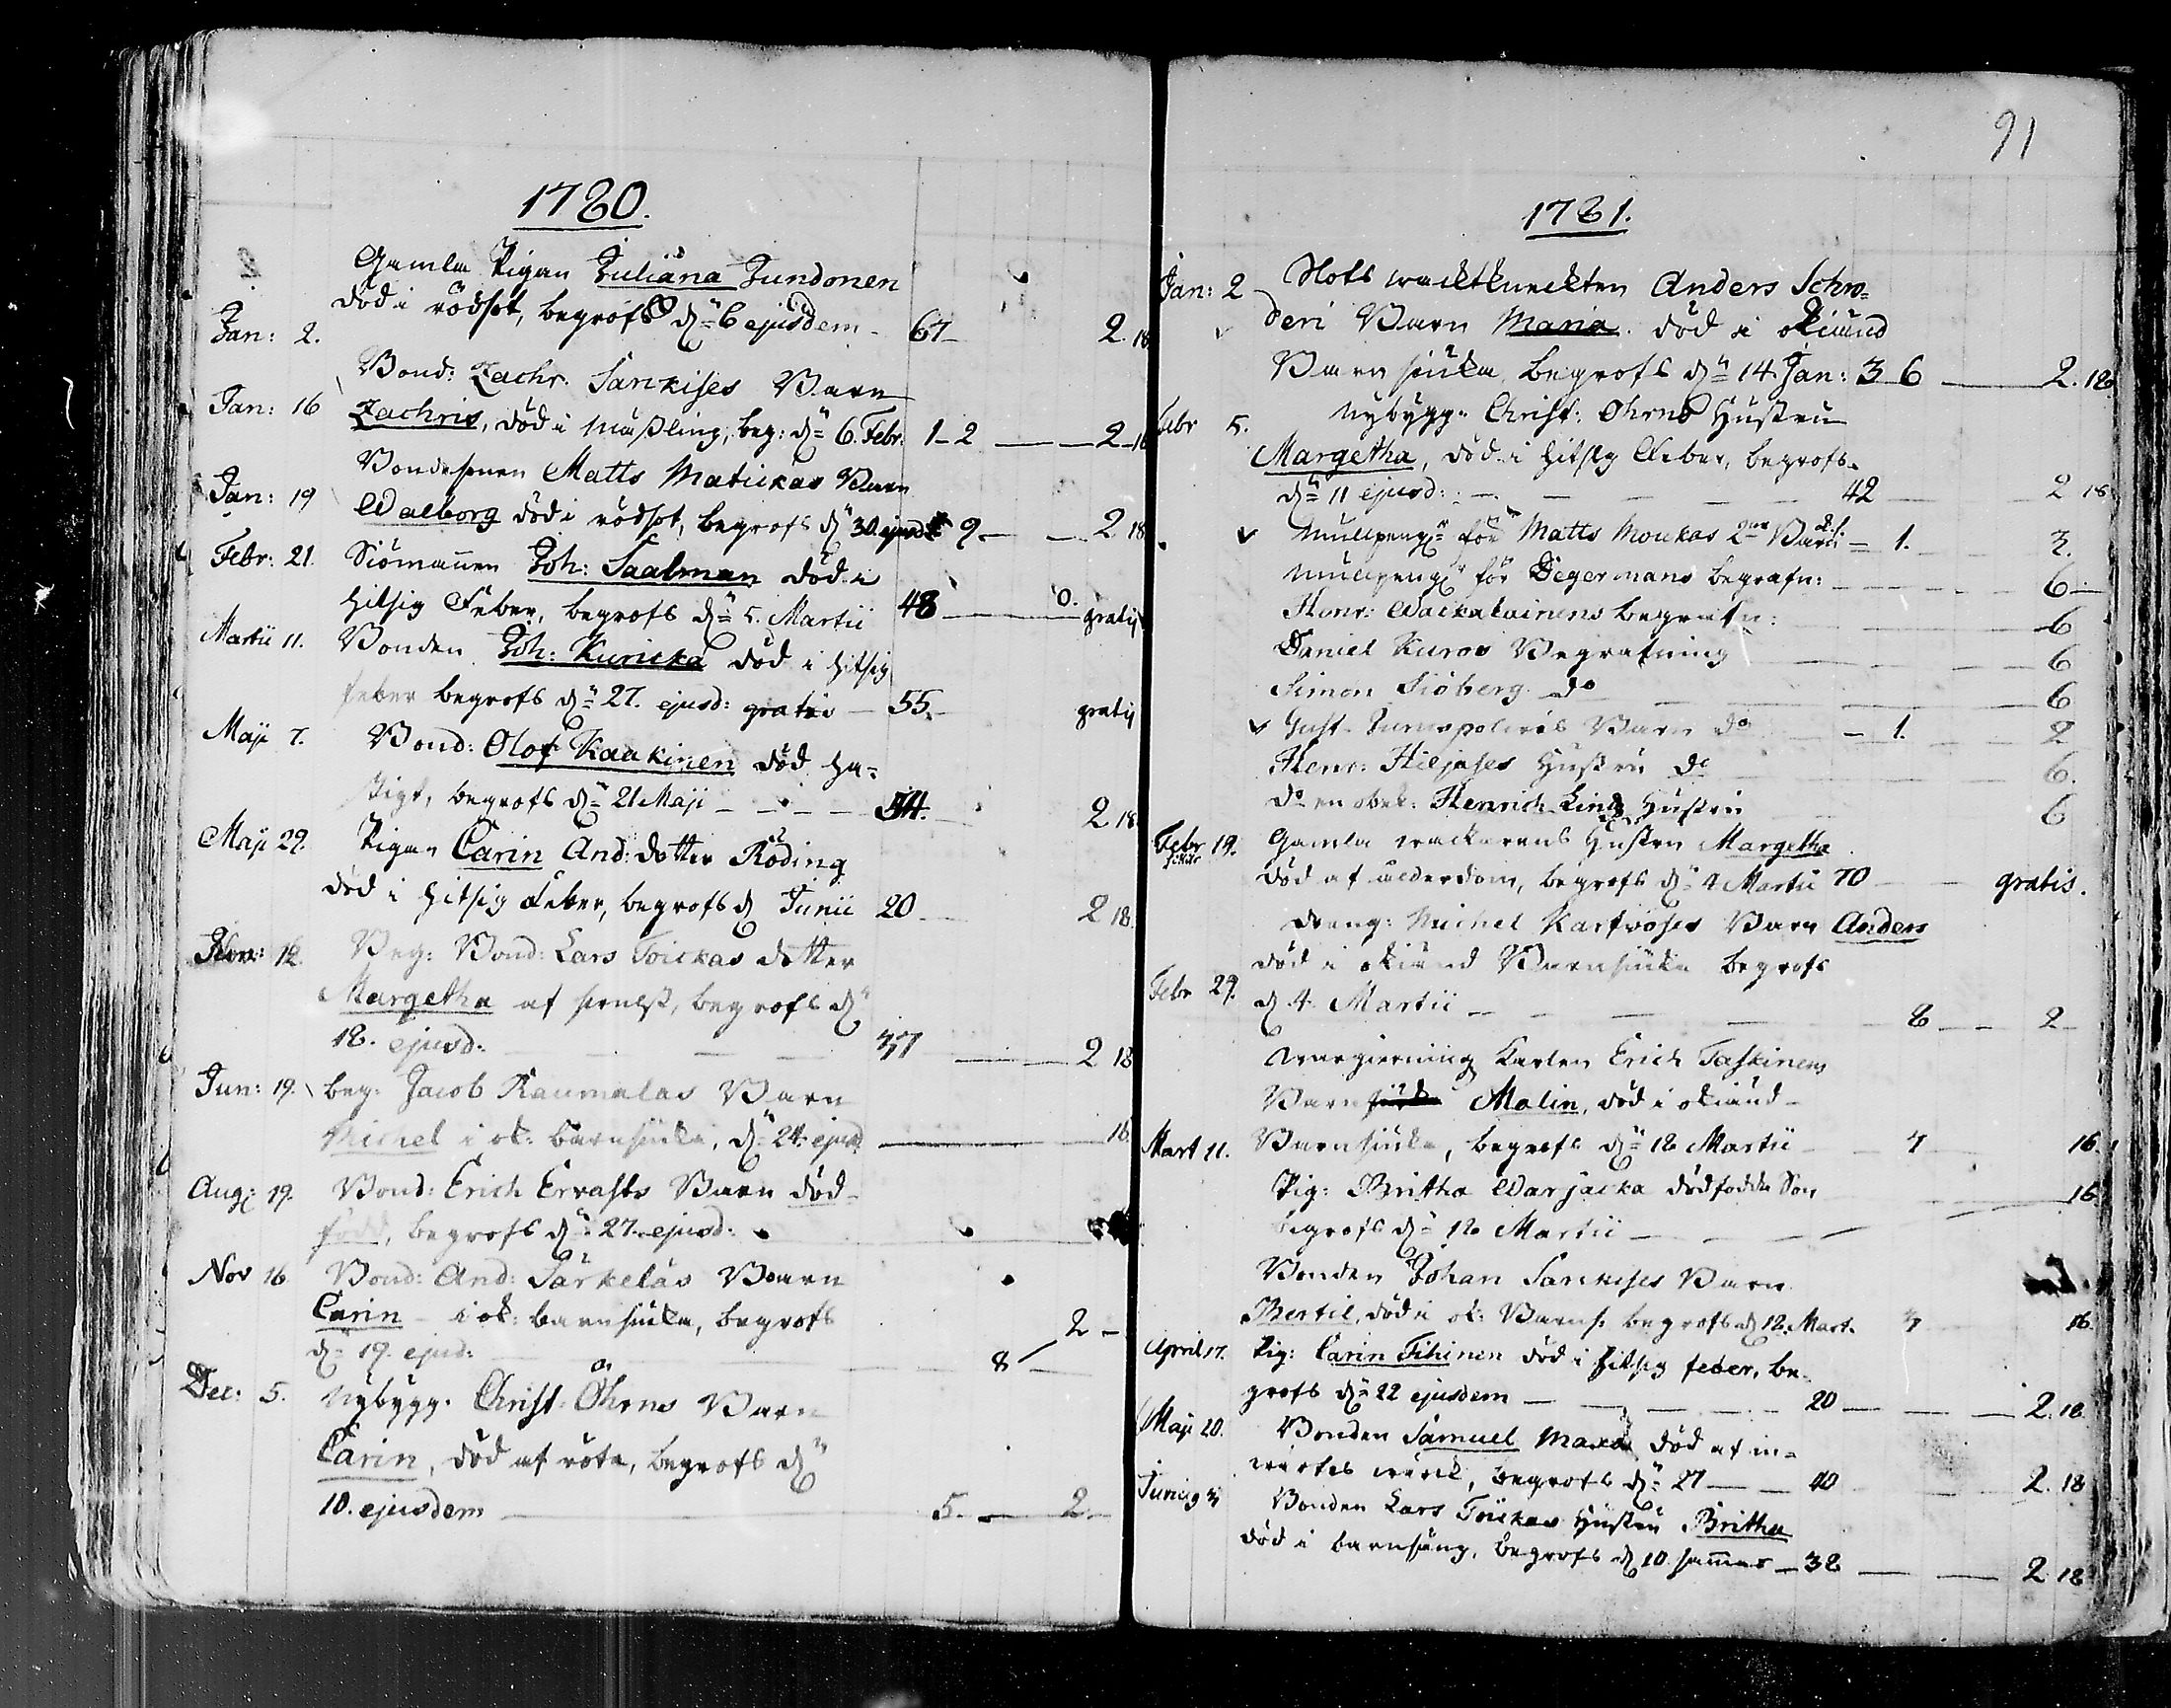 1780.
Gamla Pigan Juliana Jundonen
Jan: 2. död i rödsot, begrofs dn 6 ejusdem - 67 - 2. 18
Bond: Zachr. Sarkises Barn
Jan: 16 Zachris, död i Mäßling, beg: dn 6. Febr. 1 - 2 - 2 - 16
Bondesonen Matts Matickas Barn
Jan: 19 Walborg död i rödsot, begrofs dn 30. ejusd 9 - 2 18
Febr: 21. Siömannen Joh: Saalman död i
hitsig Feber, begrofs dn 5. Martii 48 0. gratis
Martii 11. Bonden Joh: Kuricka död i hitsig
feber begrofs dn 27. ejusd: gratis - 55. - gratis
Maji 7. Bond: Olof Kaakinen död ha-
stigt, begrofs dn 21 Maji - 54. 2 18.
Maji 29. Pigan Carin And: dotter Röding
död i hitsig Feber, begrofs d Junii 20 - 2 18.
12. Beg: Bond: Lars Toickas dotter
Margetha af begrofs dn
18. ejusd: 37 - 2 18
Jun: 19. beg: Jacob Raumalas Barn
Michel i ok: barnsiuka, dn 24. ejusd. 16.
Aug: 19. Bond: Erich Ervasts Barn död-
född, begrofs dn 27. ejusd:
Nov 16 Bond: And: Särkeläs Barn
Carin - i ok: barnsiuka, begrofs
dn 19. ejusd: 8 - 2 -
Dec: 5. Nybygg. Christ: Öhrns Barn
Carin, död af röta, begrofs dn
10. ejusdem 5. - 2 -
91
1781.
Jan: 2 Slots wacktkneckten Anders Schrö-
deri Barn Maria. död i okiänd
Barnsiuka, begrofs dn 14. Jan: 3 6 - 2. 18.
Febr 5. Nybygg. Christ: Öhrns Hustru
Margetha, död i hitsig Feber, begrofs
dn 11 ejusd: - 42 - 2 18
Mullpeng: för Matts Moukas 2ne Barn - 1. 3.
Mullpeng: för Degermans begrafn: - 6 -
Henr: Wackalainens begrafn: 6
Daniel Kuros Begrafning - 6
Simon Siöberg do - 6
Gust. Barn do - 1. - 2
Henr: Hiljases Hustru do 6.
do en obek: Henrich Linds Hustru 6
Febr 19. Gamla wacktarens Hustru Margetha
död af ålderdom, begrofs dn 4 Martii 70 - gratis.
dräng: Michel Karfwoses Barn Anders
död i okiänd Barnsiuka begrofs
Febr 29. d 4. Martii - 8 - 2 -
Erich Taskinens
Barn Malin, död i okiänd-
Mart 11. Barnsiuka, begrofs dn 18 Martii - 7 16.
Pig: Britha Warjacka dödfödda Son
begrofs dn 18 Martii - 16
Bonden Johan Sarkises Barn
Bertil, död i ok: Barns: begrofs d 18. Mart. 7 16.
April 17. Pig: Carin Tihinen död i hitsig feber, be-
grofs dn 22 ejusdem - 20 - 2. 18
Maji 20. Bonden Samuel Maxa död af in-
wertes wärck, begrofs dn 27 - 40 2. 18
Junii 3 Bonden Lars Toickas Hustru Britha
död i barnsäng, begrofs d 10 sammas - 38 - 2. 18